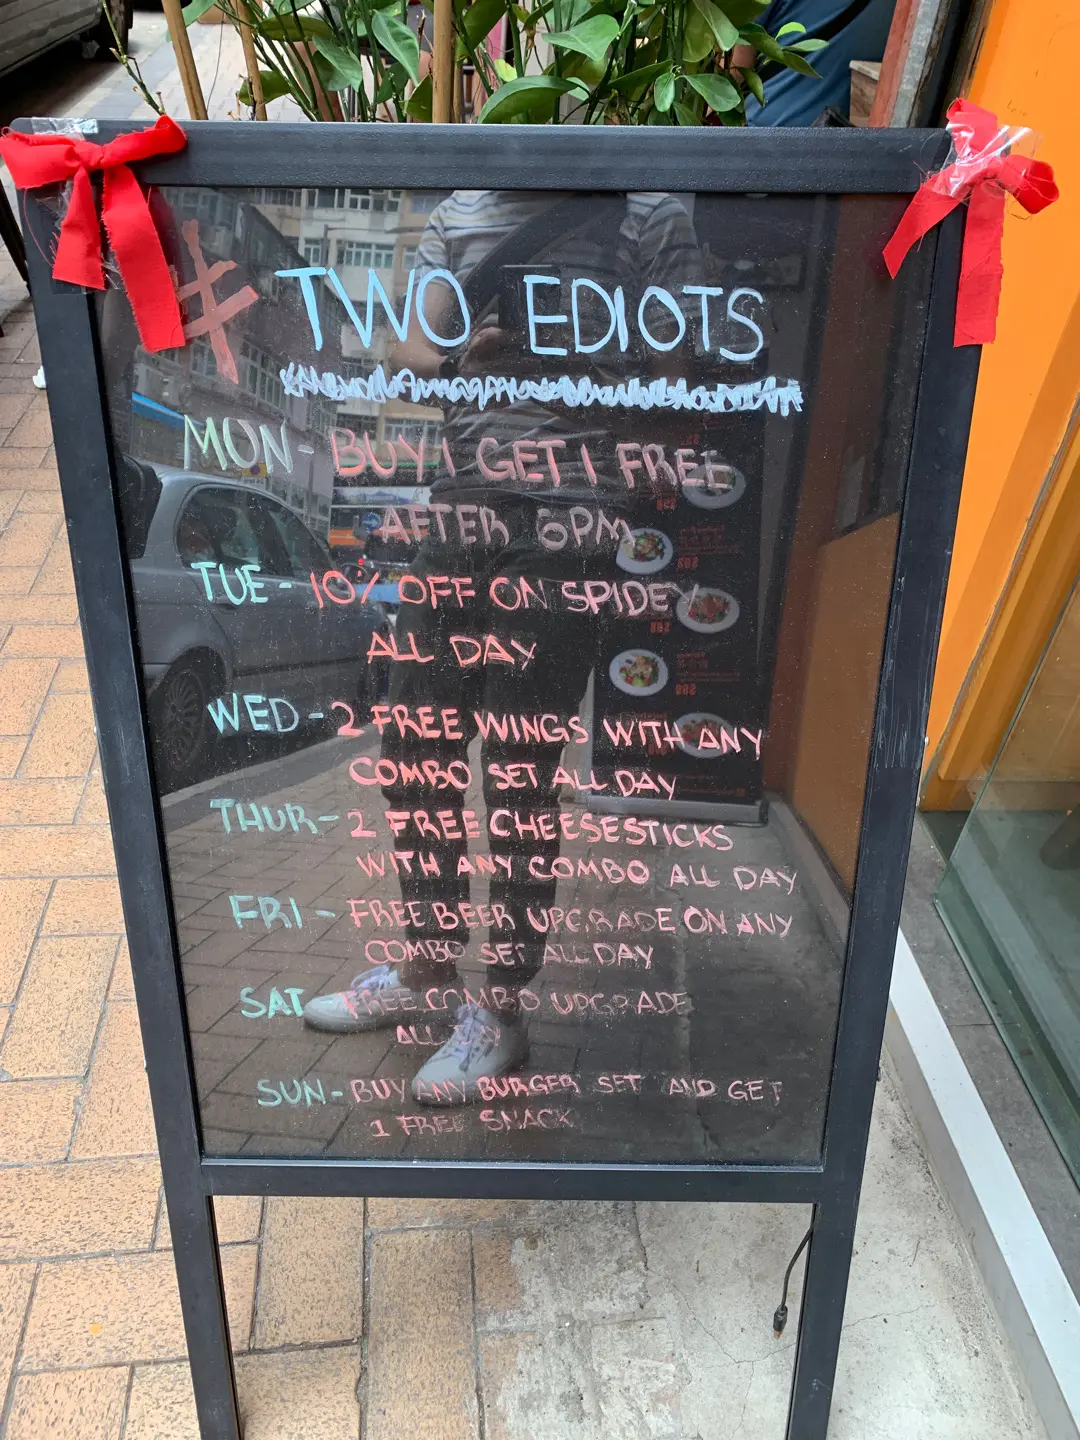 TWO EDIOTS
MON - BUY 1 GET 1 FREE
AFTER 6PM
TUE - 10% OFF ON SPIDEY
ALL DAY
WED - 2 FREE WINGS WITH ANY
COMBO SET ALL DAY
THUR - 2 FREE CHEESESTICKS
WITH ANY COMBO ALL DAY
FRI - FREE BEER UPGRADE ON ANY
COMBO SET ALL DAY
SAT FREE COMBO UPGRADE
ALL DAY
SUN - BUY ANY BURGER SET AND GET
1 FREE SNACK